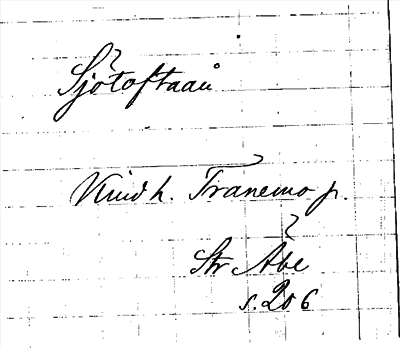 Sjötoftaån
Kind h. Tranemo p.
Str Åbe
s. 206